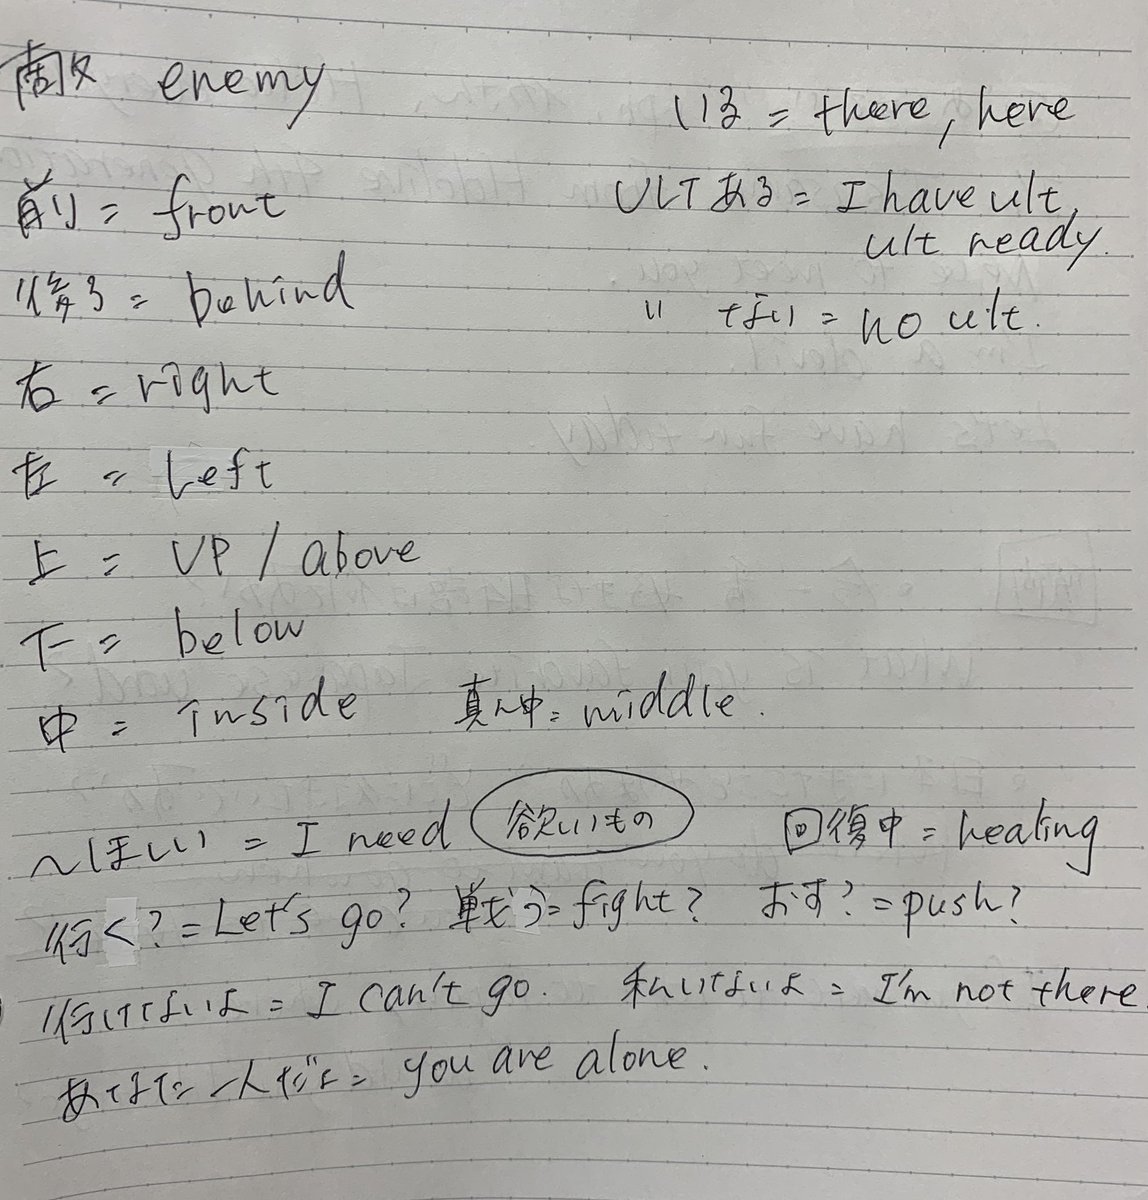 敵 enemy
いる = there, here
前 = front
ULT ある = I have ult,
ult ready.
後ろ = behind
〃 ない = no ult.
右 = right
左 = Left
上 = UP / above
下 = below
中 = inside 真ん中 = middle.
〜ほしい = I need 欲しいもの 回復中 = healing
行く? = Let's go? 戦う = fight? おす? = push?
行けないよ = I can't go. 私いないよ = I'm not there
あなた一人だよ = you are alone.